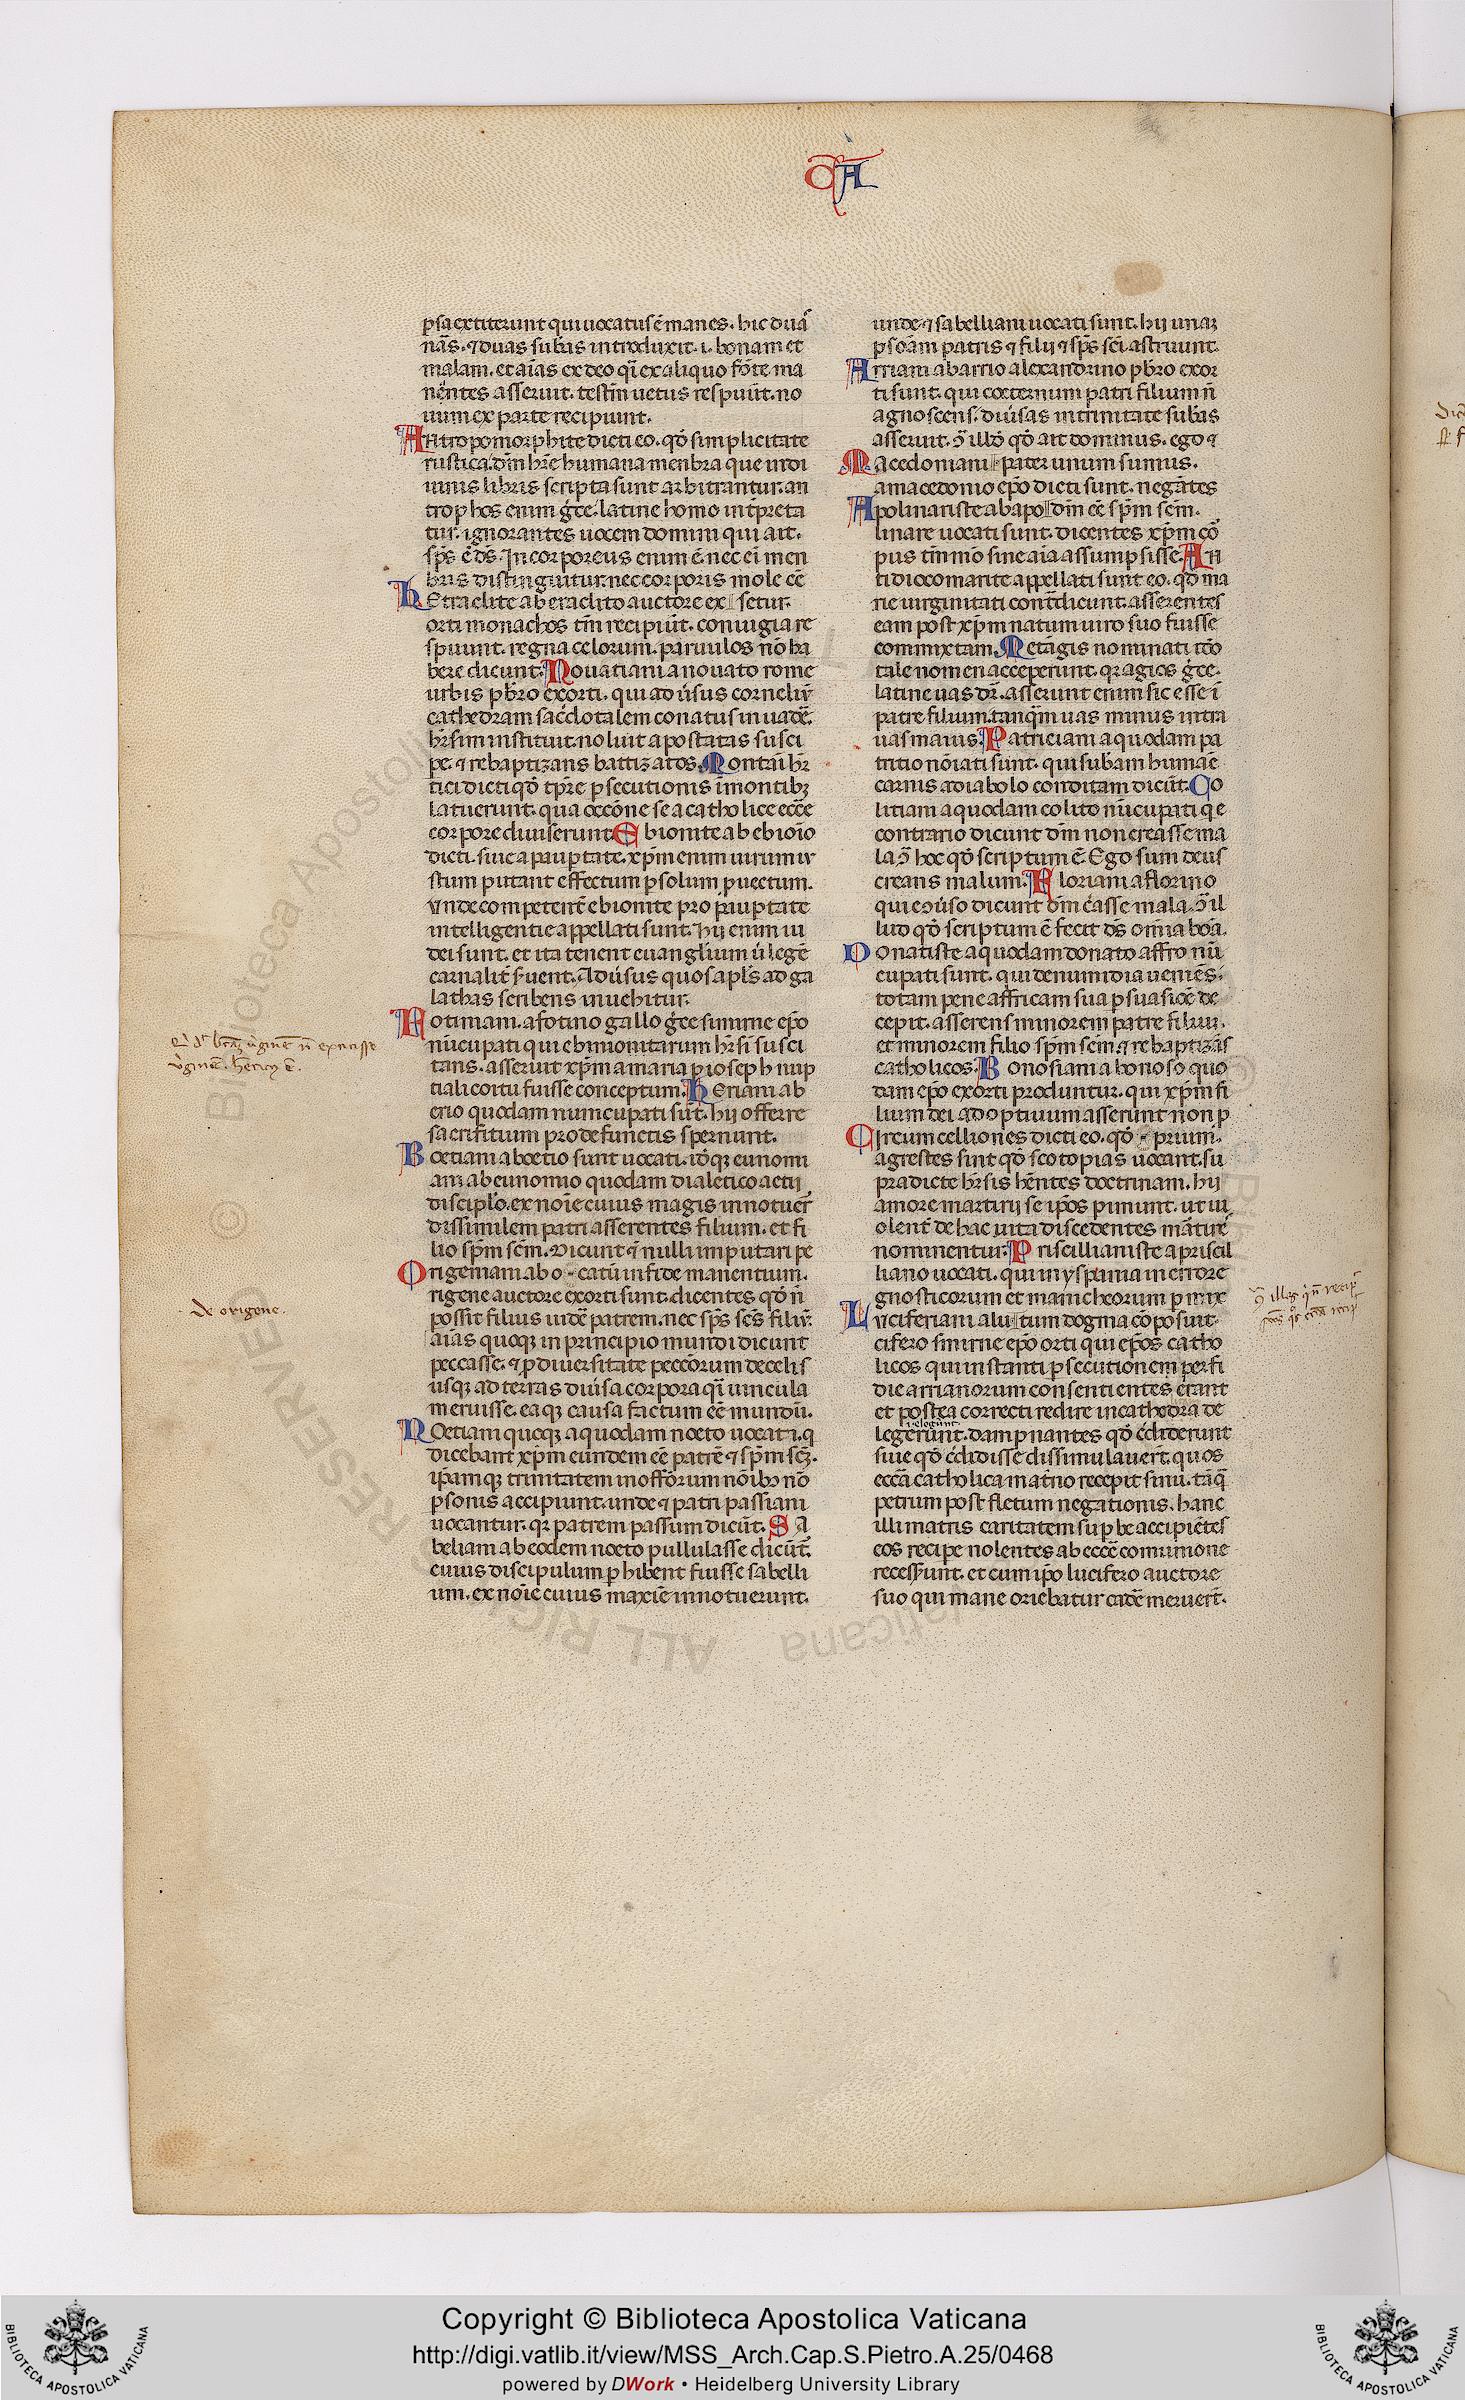 A
ꝑsa extiterunt qui uocatus ē manes. hic duas
nās. ⁊ duas subās introduxit .i. bonam et
malam. et aīas ex deo q̄i ex aliquo fōte ma
nentes asserūt. testm̄ uetus respuūt. no
uum ex parte recipiunt.
Antropomorphite dicti eo. qđ simplicitate
rustica. dm̄ hr̄e humana menbra que in di
uinis libris scripta sunt arbitrantur. an
trophos enim grece. latine homo intp̄reta
tur. ignorantes uocem domini qui ait.
sp̄s ē ds̄. Incorporeus enim ē. nec ei men
bris distinguitur. nec corporis mole cē
Hetraclite ab eraclito auctore ex setur.
orti monachos tm̄ recipiūt. coniugia re
spuunt. regna celorum. paruulos nō ha
bere dicunt. Nouatiani a nouato rome
urbis pb̄ro exorti. qui aduersus corneliū
cathedram sac̄dotalem conatus inuadē.
hr̄sim instituit. noluit apostatas susci
pe. ⁊ rebaptizans battizatos. Montani hr̄
tici dicti qđ tp̄re ꝑsecutionis ī montibꝫ
latuerunt. qua occōne se a catholice ecc̄e
corpore diuiserunt. Ebionite ab ebioīo
dicti. siue a pauꝑtate. xp̄m enim uirum iu
stum putant effectum ꝑ solum ꝓuectum.
vnde competent̄ ebionite pro pauꝑtate
intelligentie appellati sunt. hij enim iu
dei sunt. et ita tenent euanglium ut legē
carnalit̄ seruent. Aduersus quos apl̄s ad ga
lathas scribens inuehitur.
Fotiniani. a fotino gallo grece smirne ep̄o
nūcupati qui ebinionitarum hr̄sī susci
tans. asseruit xp̄m a maria ꝑ ioseph nup
tiali coitu fuisse conceptum. Heriani ab
erio quodam nuncupati sūt. hij offerre
sacrifitium pro defunctis spernunt.
Boetiani a boetio sunt uocati. idēqꝫ eunomi
ani ab eunomio quodam dialetico aetij
discipl̄o. ex noīe cuius magis innotuer̄
dissimilem patri asserentes filium. et fi
lio sp̄m sc̄m. dicunt ⁊ nulli imputari pe
Origeniani ab o catū in fide manentium.
rigene auctore exorti sunt. dicentes qđ n̄
possit filius uidē patrem. nec sp̄s sc̄s filiū.
aīas quoqꝫ in principio mundi dicunt
peccasse. ⁊ ꝓ diuersitate peccōrum de celis
usqꝫ ad terras diuisa corpora q̄i uincula
meruisse. eaqꝫ causa factum eē mundū.
Noetiani quoqꝫ a quodam noeto uocati. q
dicebant xp̄m eundem eē patrē ⁊ sp̄m sc̄ꝫ.
ip̄amqꝫ trinitatem in offōrum nōibꝫ nō
ꝑsonis accipiunt. unde ⁊ patripassiani
uocantur. qꝛ patrem passum dicūt. Sa
belliani ab eodem noeto pullulasse dicūt.
cuius discipulum ꝑhibent fuisse sabelli
um. ex noīe cuius maxīe innotuerunt.
unde ⁊ sabelliani uocati sunt. hij unaꝫ
ꝑsoām patris ⁊ filij ⁊ sp̄s sc̄i astruunt.
Arriani ab arrio alexandrino pb̄ro exor
ti sunt. qui coeternum patri filium n̄
agnoscens. diūsas in trinitate subās
asseruit. ꝯ̄ illđ qđ ait dominus. ego ⁊
Macedoniani pater unum sumus.
a macedonio ep̄o dicti sunt. negātes
Apolinariste ab apo dm̄ eē sp̄m sc̄m.
linare uocati sunt. dicentes xp̄m cor
pus tm̄mō sine aīa assumpsisse. An
tidiocomarite appellati sunt eo. qđ ma
rie uirginitati cont̄dicunt. asserentes
eam post xp̄m natum uiro suo fuisse
commixtam. Metāgis nominati iccō
tale nomen acceperunt. qꝛ agios grece.
latine uas dr̄. asserunt enim sic esse ī
patre filium. tanq̄m uas minus intra
uas maius. Patriciani a quodam pa
tritio nōiati sunt. qui subam humāe
carnis a diabolo conditam dicūt. Co
litiani a quodam colito nūcupati q e
contrario dicunt dm̄ non creasse ma
la. ꝯ̄ hoc qđ scriptum ē. Ego sum deus
creans malum. Floriani a florino
qui e ꝯ̄uerso dicunt dm̄ c̄asse mala. ꝯ̄ il
lud qđ scriptum ē fecit ds̄ omnia bōa.
Donatiste a quodam donato affro nū
cupati sunt. qui de numidia ueniēs.
totam pene affricam sua ꝑsuasiōe de
cepit. asserens minorem patre filiū.
et minorem filio sp̄m sc̄m. ⁊ rebaptizās
catholicos. Bonosiani a bonoso quo
dam ep̄o exorti produntur. qui xp̄m fi
lium dei adoptiuum asserunt non ꝓ
Circumcelliones dicti eo. qđ prium.
agrestes sint qđ scotopias uocant. su
pradicte hr̄sis hn̄tes doctrinam. hij
amore martirij se ip̄os pimunt. ut ui
olent̄ de hac uita discedentes mātire
nominentur. Priscillianiste a priscil
liano uocati. qui in yspania in errore
gnosticorum et manicheorum ꝑmix
Luciferiani a lu tum dogma cōposuit.
cifero smirne ep̄o orti qui ep̄os catho
licos qui instanti ꝑsecutionem perfi
die arrianorum consentientes erant
et postea correcti redire in cathedra de
uł elegūnt
legerunt. dampnantes qđ c̄diderunt
siue qđ c̄didisse dissimulauert̄. quos
ecc̄a catholica mat̄no recepit sinu. tāq̄
petrum post fletum negationis. hanc
illi matris caritatem supbe accipiētes
eos recipe nolentes ab ecc̄e comunione
recesserunt. et cum ip̄o lucifero auctore
suo qui mane oriebatur cadē meruert̄.
de origene.
Copyright © Biblioteca Apostolica Vaticana
http://digi.vatlib.it/view/MSS_Arch.Cap.S.Pietro.A.25/0468
powered by DWork • Heidelberg University Library
BIBLIOTECA APOSTOLICA VATICANA
BIBLIOTECA APOSTOLICA VATICANA